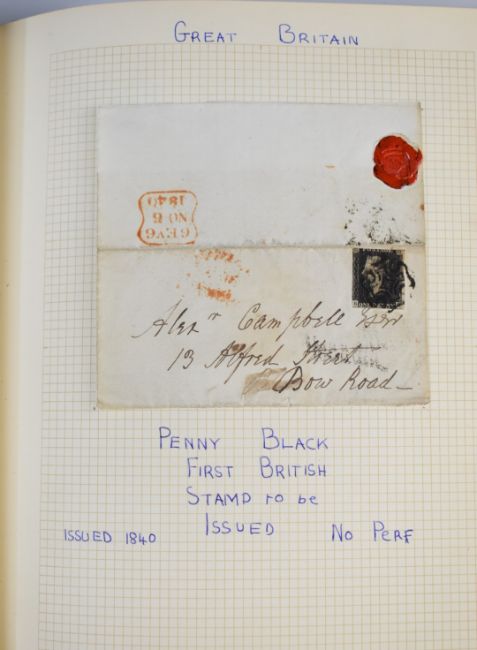 GREAT BRITAIN
1841
NO 8
6 EVG 6
Alexr Campbell Esqr
13 Alfred Street
Bow Road
PENNY BLACK
FIRST BRITISH
STAMP TO be
ISSUED
ISSUED 1840
NO PERF